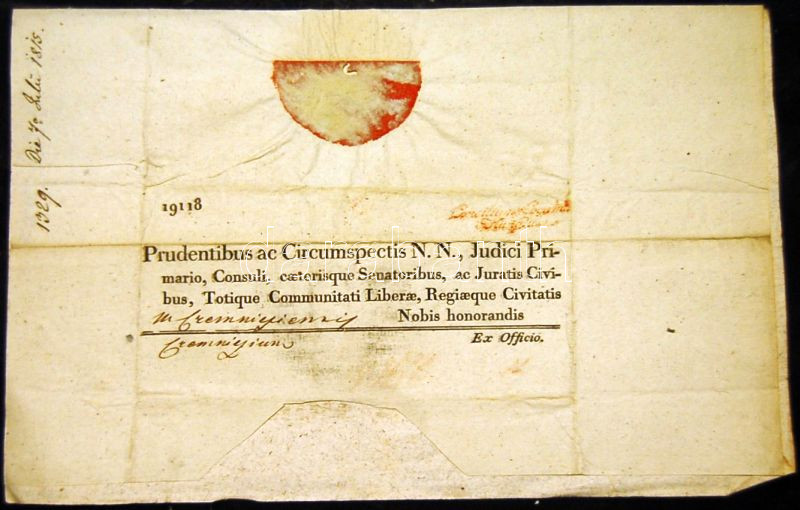 1329. Die 7a Julii 1815.
19118
Prudentibus ac Circumspectis N. N., Judici Pri-
mario, Consuli, cæterisque Senatoribus, ac Juratis Civi-
bus, Totique Communitati Liberæ, Regiæque Civitatis
Cremniciensis Nobis honorandis
Ex Officio.